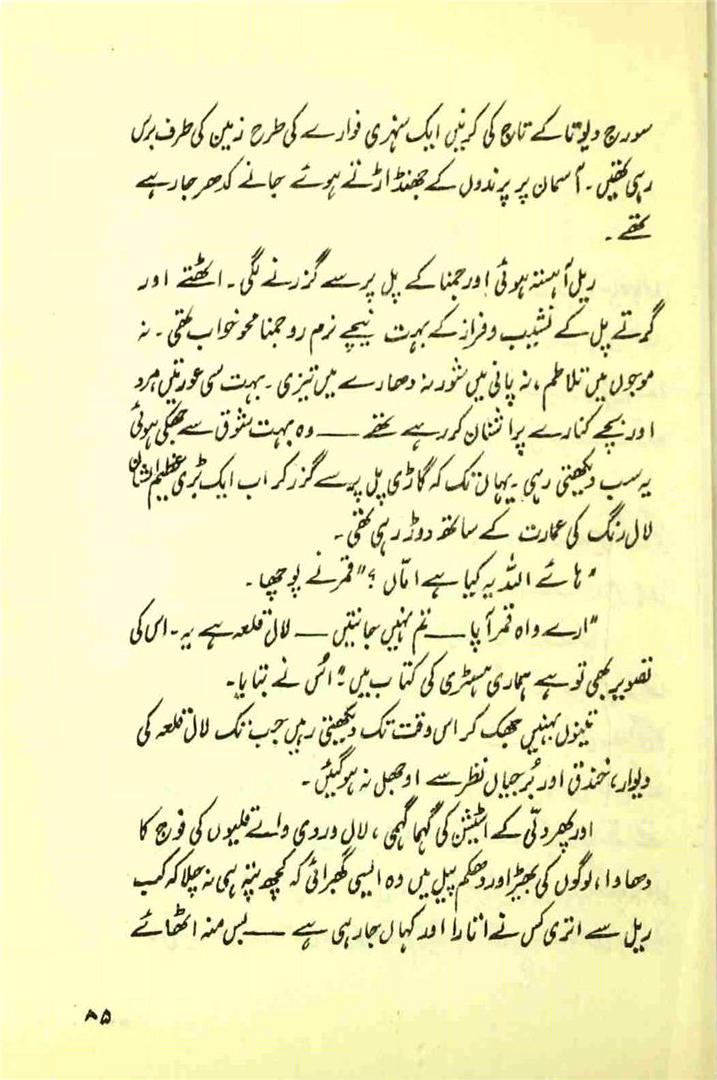 سورج دیوتا کے تاج کی کرنیں ایک سنہری فوارے کی طرح زمین کی طرف برس
رہی تھیں۔ آسمان پر پرندوں کے جھنڈ اڑتے ہوئے جانے کدھر جا رہے
تھے۔
ریل آہستہ ہوئی اور جمنا کے پل پر سے گزرنے لگی۔ اٹھتے اور
گرتے پل کے نشیب و فراز کے بہت نیچے نرم رو جمنا محو خواب تھی۔ نہ
موجوں میں تلاطم، نہ پانی میں شور نہ دھارے میں تیزی۔ بہت سی عورتیں مرد
اور بچے کنارے پر اشنان کر رہے تھے ـــــ وہ بہت شوق سے جھکی ہوئی
یہ سب دیکھتی رہی۔ یہاں تک کہ گاڑی پل پر سے گزر کر اب ایک بڑی عظیم الشان
لال رنگ کی عمارت کے ساتھ دوڑ رہی تھی۔
"ہائے اللہ یہ کیا ہے اماں؟" قمر نے پوچھا۔
"ارے واہ قمر آپا ـــــ تم نہیں جانتیں ـــ لال قلعہ ہے یہ۔ اس کی
تصویر بھی تو ہے ہماری ہسٹری کی کتاب میں" اُس نے بتایا۔
تینوں بہنیں جھک کر اس وقت تک دیکھتی رہیں جب تک لال قلعہ کی
دیوار، خندق اور بُرجیاں نظر سے اوجھل نہ ہو گئیں۔
اور پھر دلّی کے اسٹیشن کی گہما گہمی، لال وردی والے قلیوں کی فوج کا
دھاوا، لوگوں کی بھیڑ اور دھکم پیل میں وہ ایسی گھبرائی کہ کچھ پتہ ہی نہ چلا کہ کب
ریل سے اتری کس نے اتارا اور کہاں جا رہی ہے ـــــ بس منہ اٹھائے
۸۵